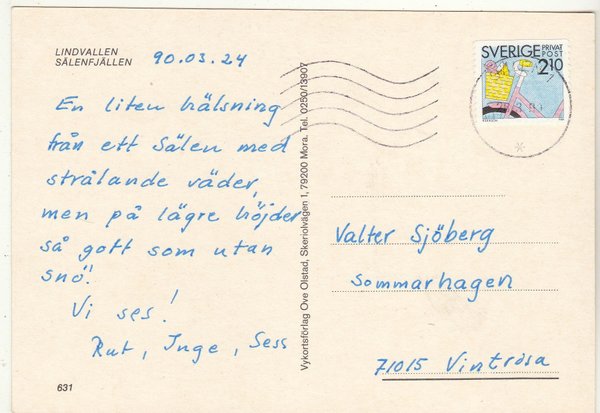 LINDVALLEN
SÄLENFJÄLLEN
90.03.24
En liten hälsning
från ett Sälen med
strålande väder,
men på lägre höjder
så gott som utan
snö!
Vi ses!
Rut, Inge, Sess
631
Vykortsförlag Ove Olstad, Skeriolvägen 1, 79200 Mora. Tel. 0250/13907
SVERIGE PRIVAT
POST
2.10
Valter Sjöberg
Sommarhagen
71015 Vintrosa